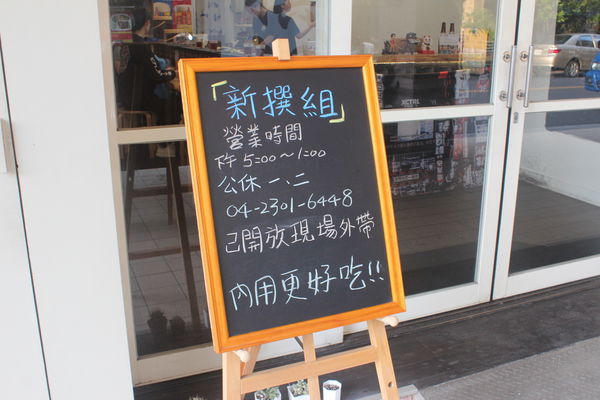 「新撰組」
營業時間
下午 5:00～1:00
公休 一、二
04-2301-6448
已開放現場外帶
內用更好吃!!